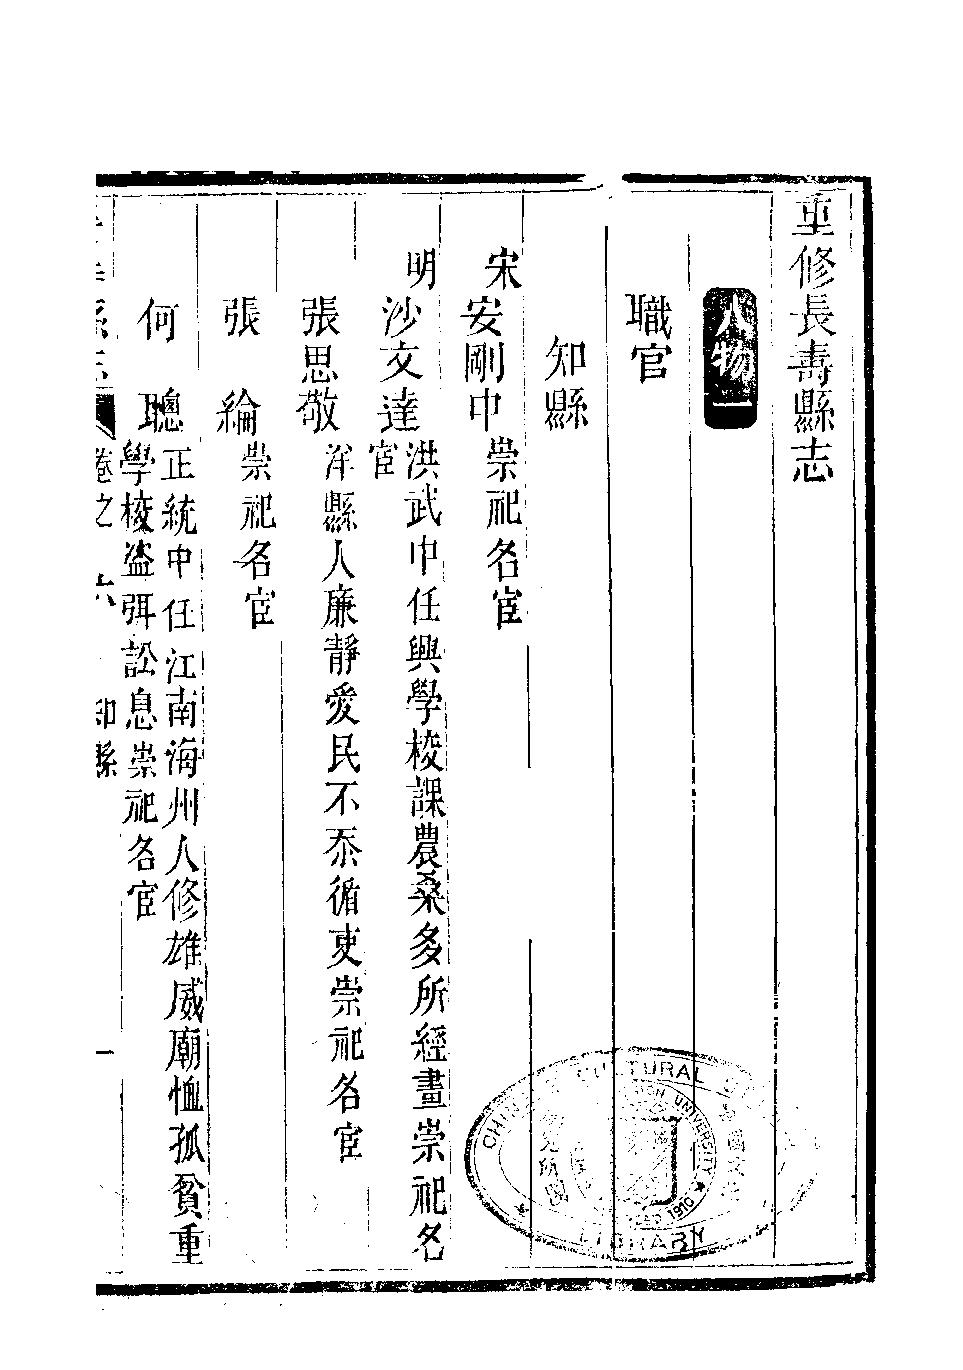 重修長壽縣志
人物一
職官
知縣
宋
安剛中 崇祀名宦
明
沙文達 洪武中任興學校課農桑多所經畫崇祀名
宦
張思敬 洋縣人廉靜愛民不忝循吏崇祀名宦
張綸 崇祀名宦
何聰 正統中任江南海州人修雄威廟恤孤貧重
學校盜弭訟息崇祀名宦
卷之六 知縣 一
CULTURAL
UNIVERSITY
1910
LIBRARY